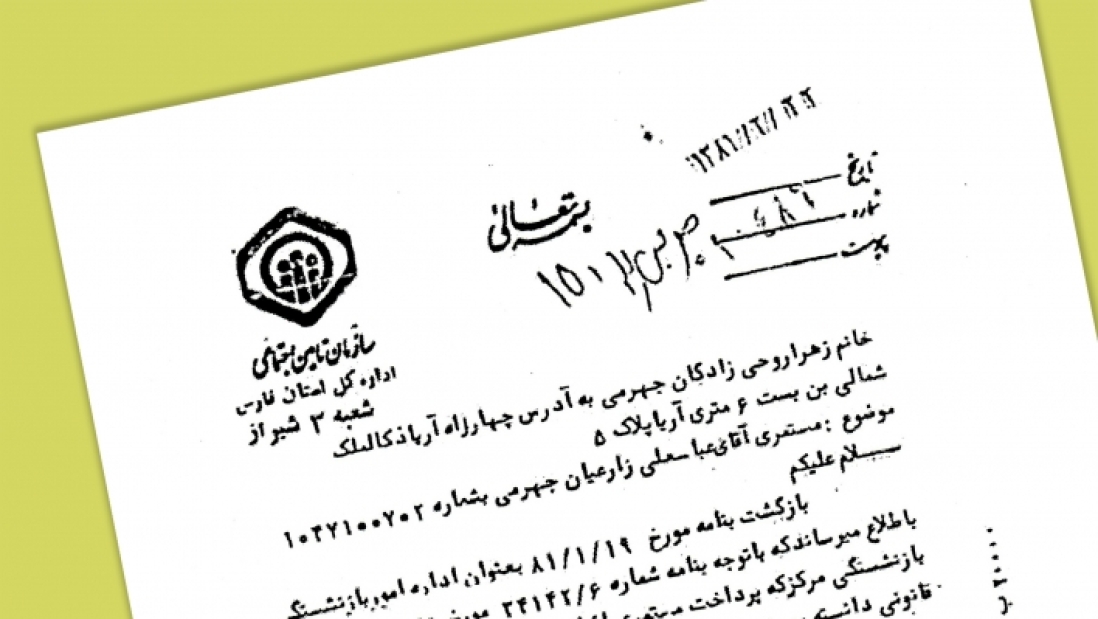 بسمه تعالی
تاریخ
شماره
پیوست
سازمان تامین اجتماعی
اداره کل استان فارس
شعبه ۳ شیراز
خانم زهرا روحی زادگان جهرمی به آدرس چهارراه آریاذکالملک
شمالی بن بست ۶ متری آریاپلاک ۵
موضوع : مستمری آقای عباسعلی زارعیان جهرمی بشماره ۱۰۴۷۱۰۰۷۰۲
سلام علیکم
بازگشت بنامه مورخ ۸۱/۱/۱۹ بعنوان اداره امور بازنشستگی
باطلاع میرساندکه باتوجه بنامه شماره ۲۴۱۴۲/۶ مورخ
بازنشستگی مرکزکه پرداخت مستمری
قانونی دانسته